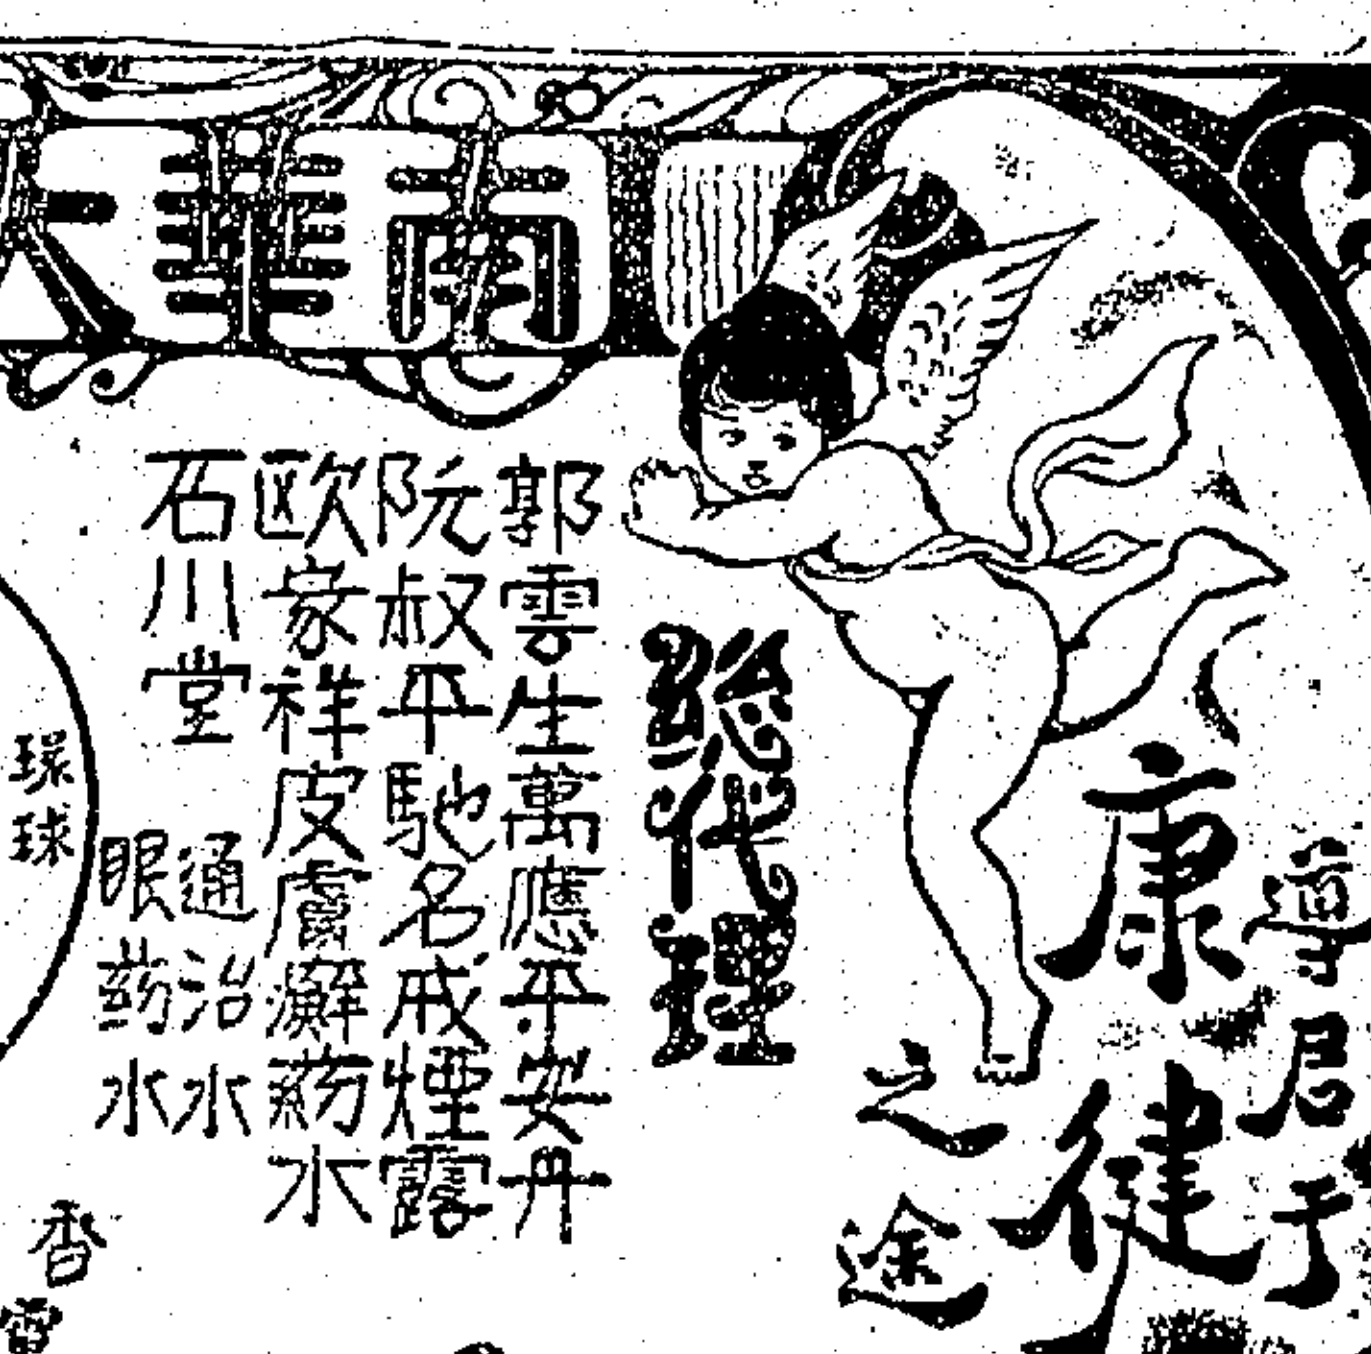 南華大
導君于
康健
之途
總代理
郭雲生萬應平安丹
阮叔平馳名戒煙露
歐家祥皮膚癬葯水
石川堂
通治水
眼葯水
環球
香